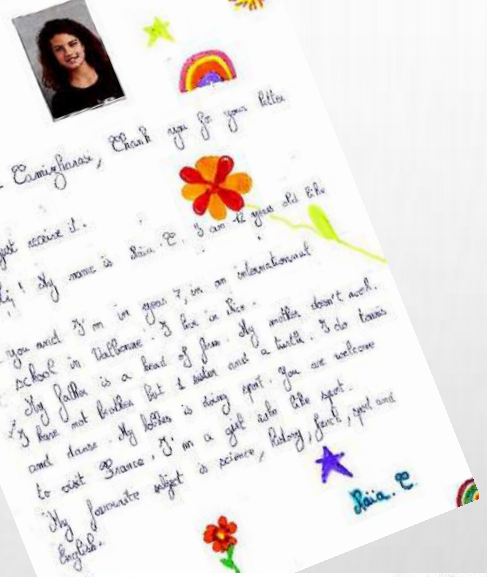 Tamizharasi, Thank you for your letter
just receive it.
! My name is Naïa.C. I am 12 years old like
you and I'm in year 7, in an internationnal
school in Valbonne. I live in Nice.
My father is a head of firm. My mother doesn't work.
I have not brother but 1 sister and a turtle. I do tennis
and danse. My hobbies is doing sport. You are welcome
to visit France. I'm a girl who like sport.
My favourite subject is science, history, french, sport and
English.
Naïa. C